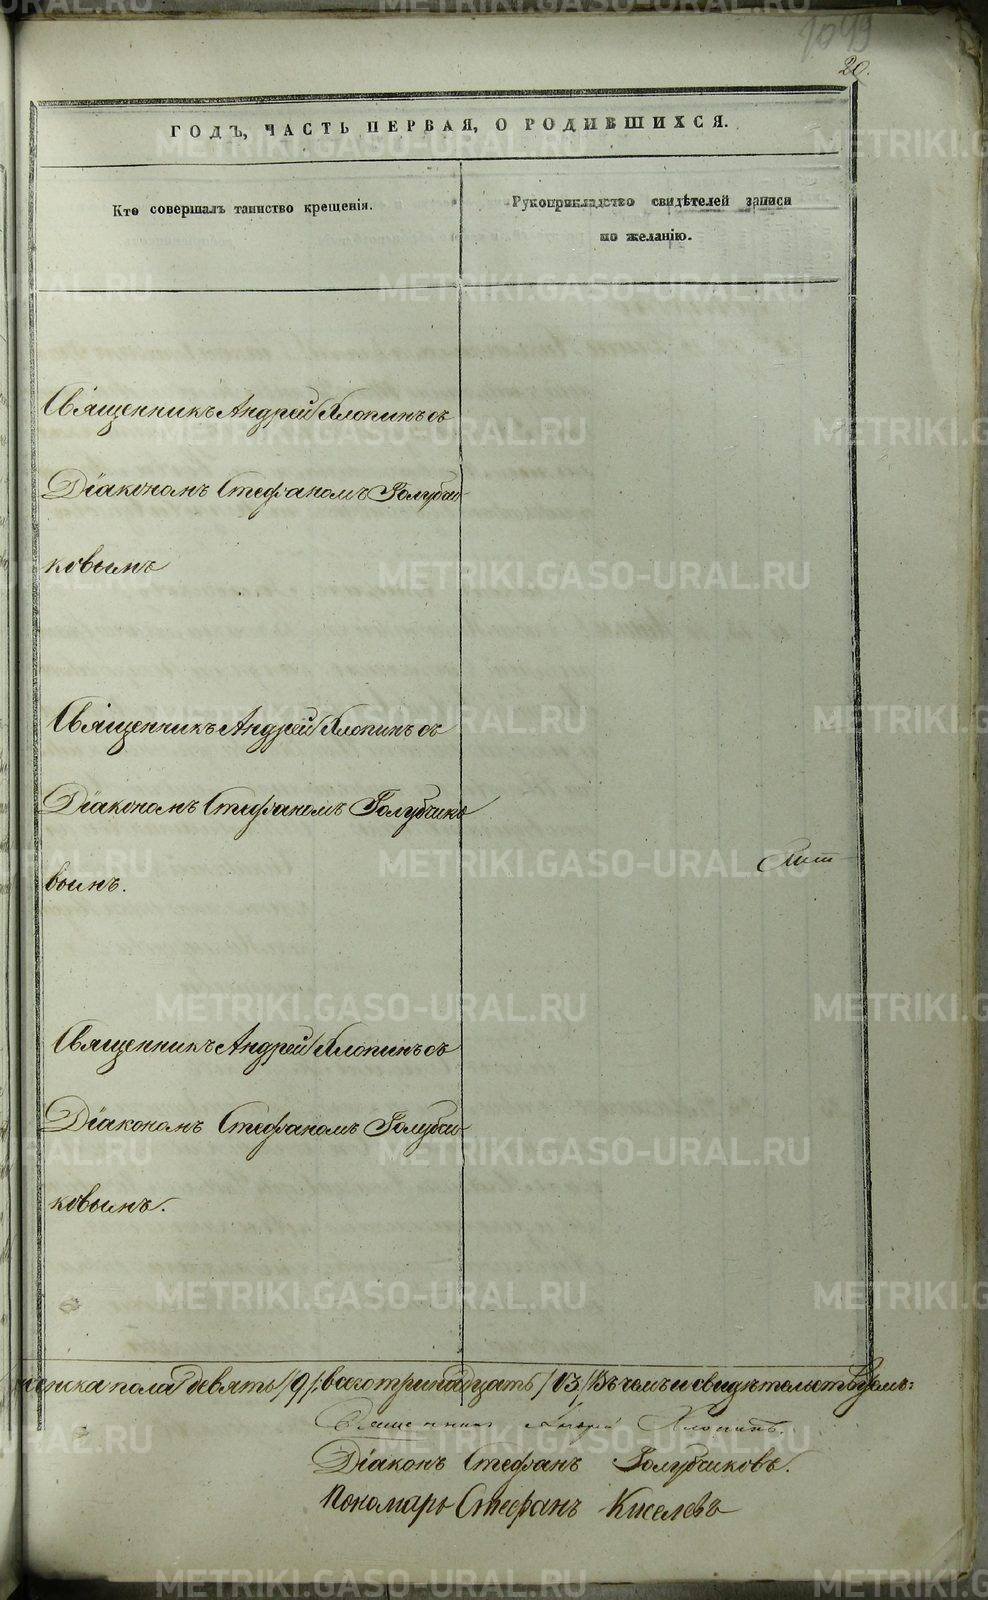 1049
20.
ГОДЪ, ЧАСТЬ ПЕРВАЯ, О РОДИВШИХСЯ.
Кто совершалъ таинство крещенія.
Рукоприкладство свидѣтелей записи
по желанію.
Священникъ Андрей Хлопинъ съ
Діакономъ Стефаномъ Голубчи-
ковымъ
Священникъ Андрей Хлопинъ съ
Діакономъ Стефаномъ Голубчико
вымъ.
Священникъ Андрей Хлопинъ съ
Діакономъ Стефаномъ Голубчи-
ковымъ.
женска пола девять /9/, всего тринадцать /13/ Въ чемъ и свидѣтельствуемъ:
Священникъ Андрей Хлопинъ.
Діаконъ Стефанъ Голубчиковъ.
Пономарь Стефанъ Киселевъ
METRIKI.GASO-URAL.RU